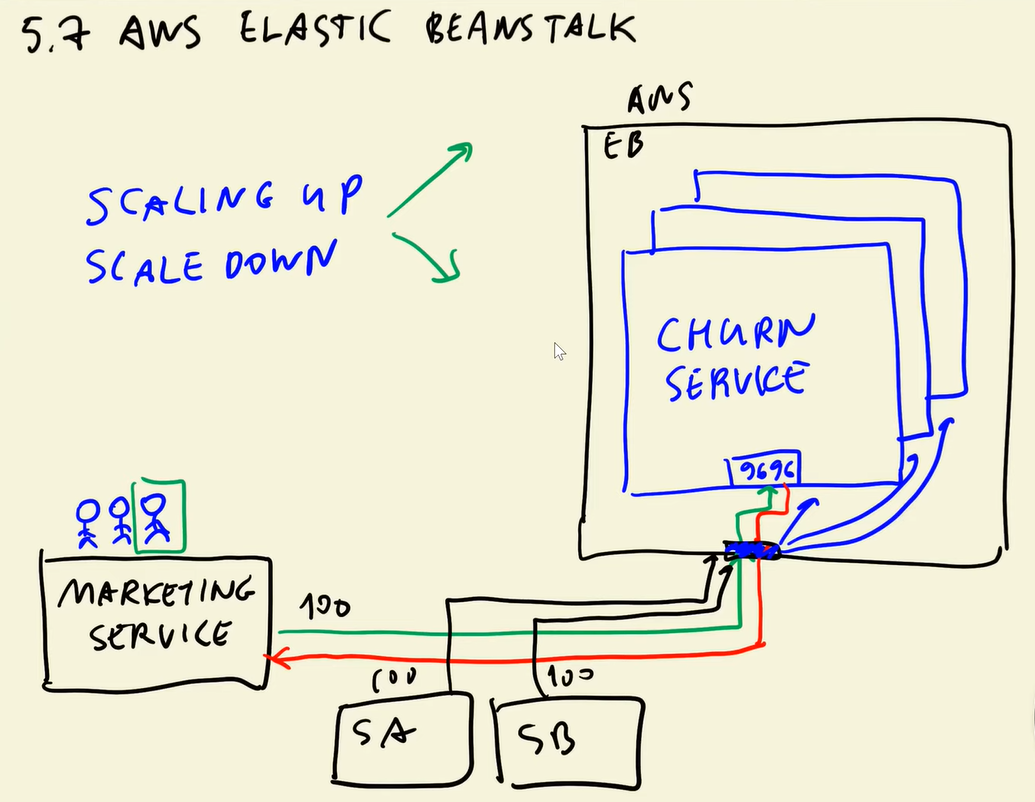 5.7 AWS ELASTIC BEANSTALK
AWS
EB
SCALING UP
SCALE DOWN
CHURN
SERVICE
9696
MARKETING
SERVICE
100
100
100
SA
SB